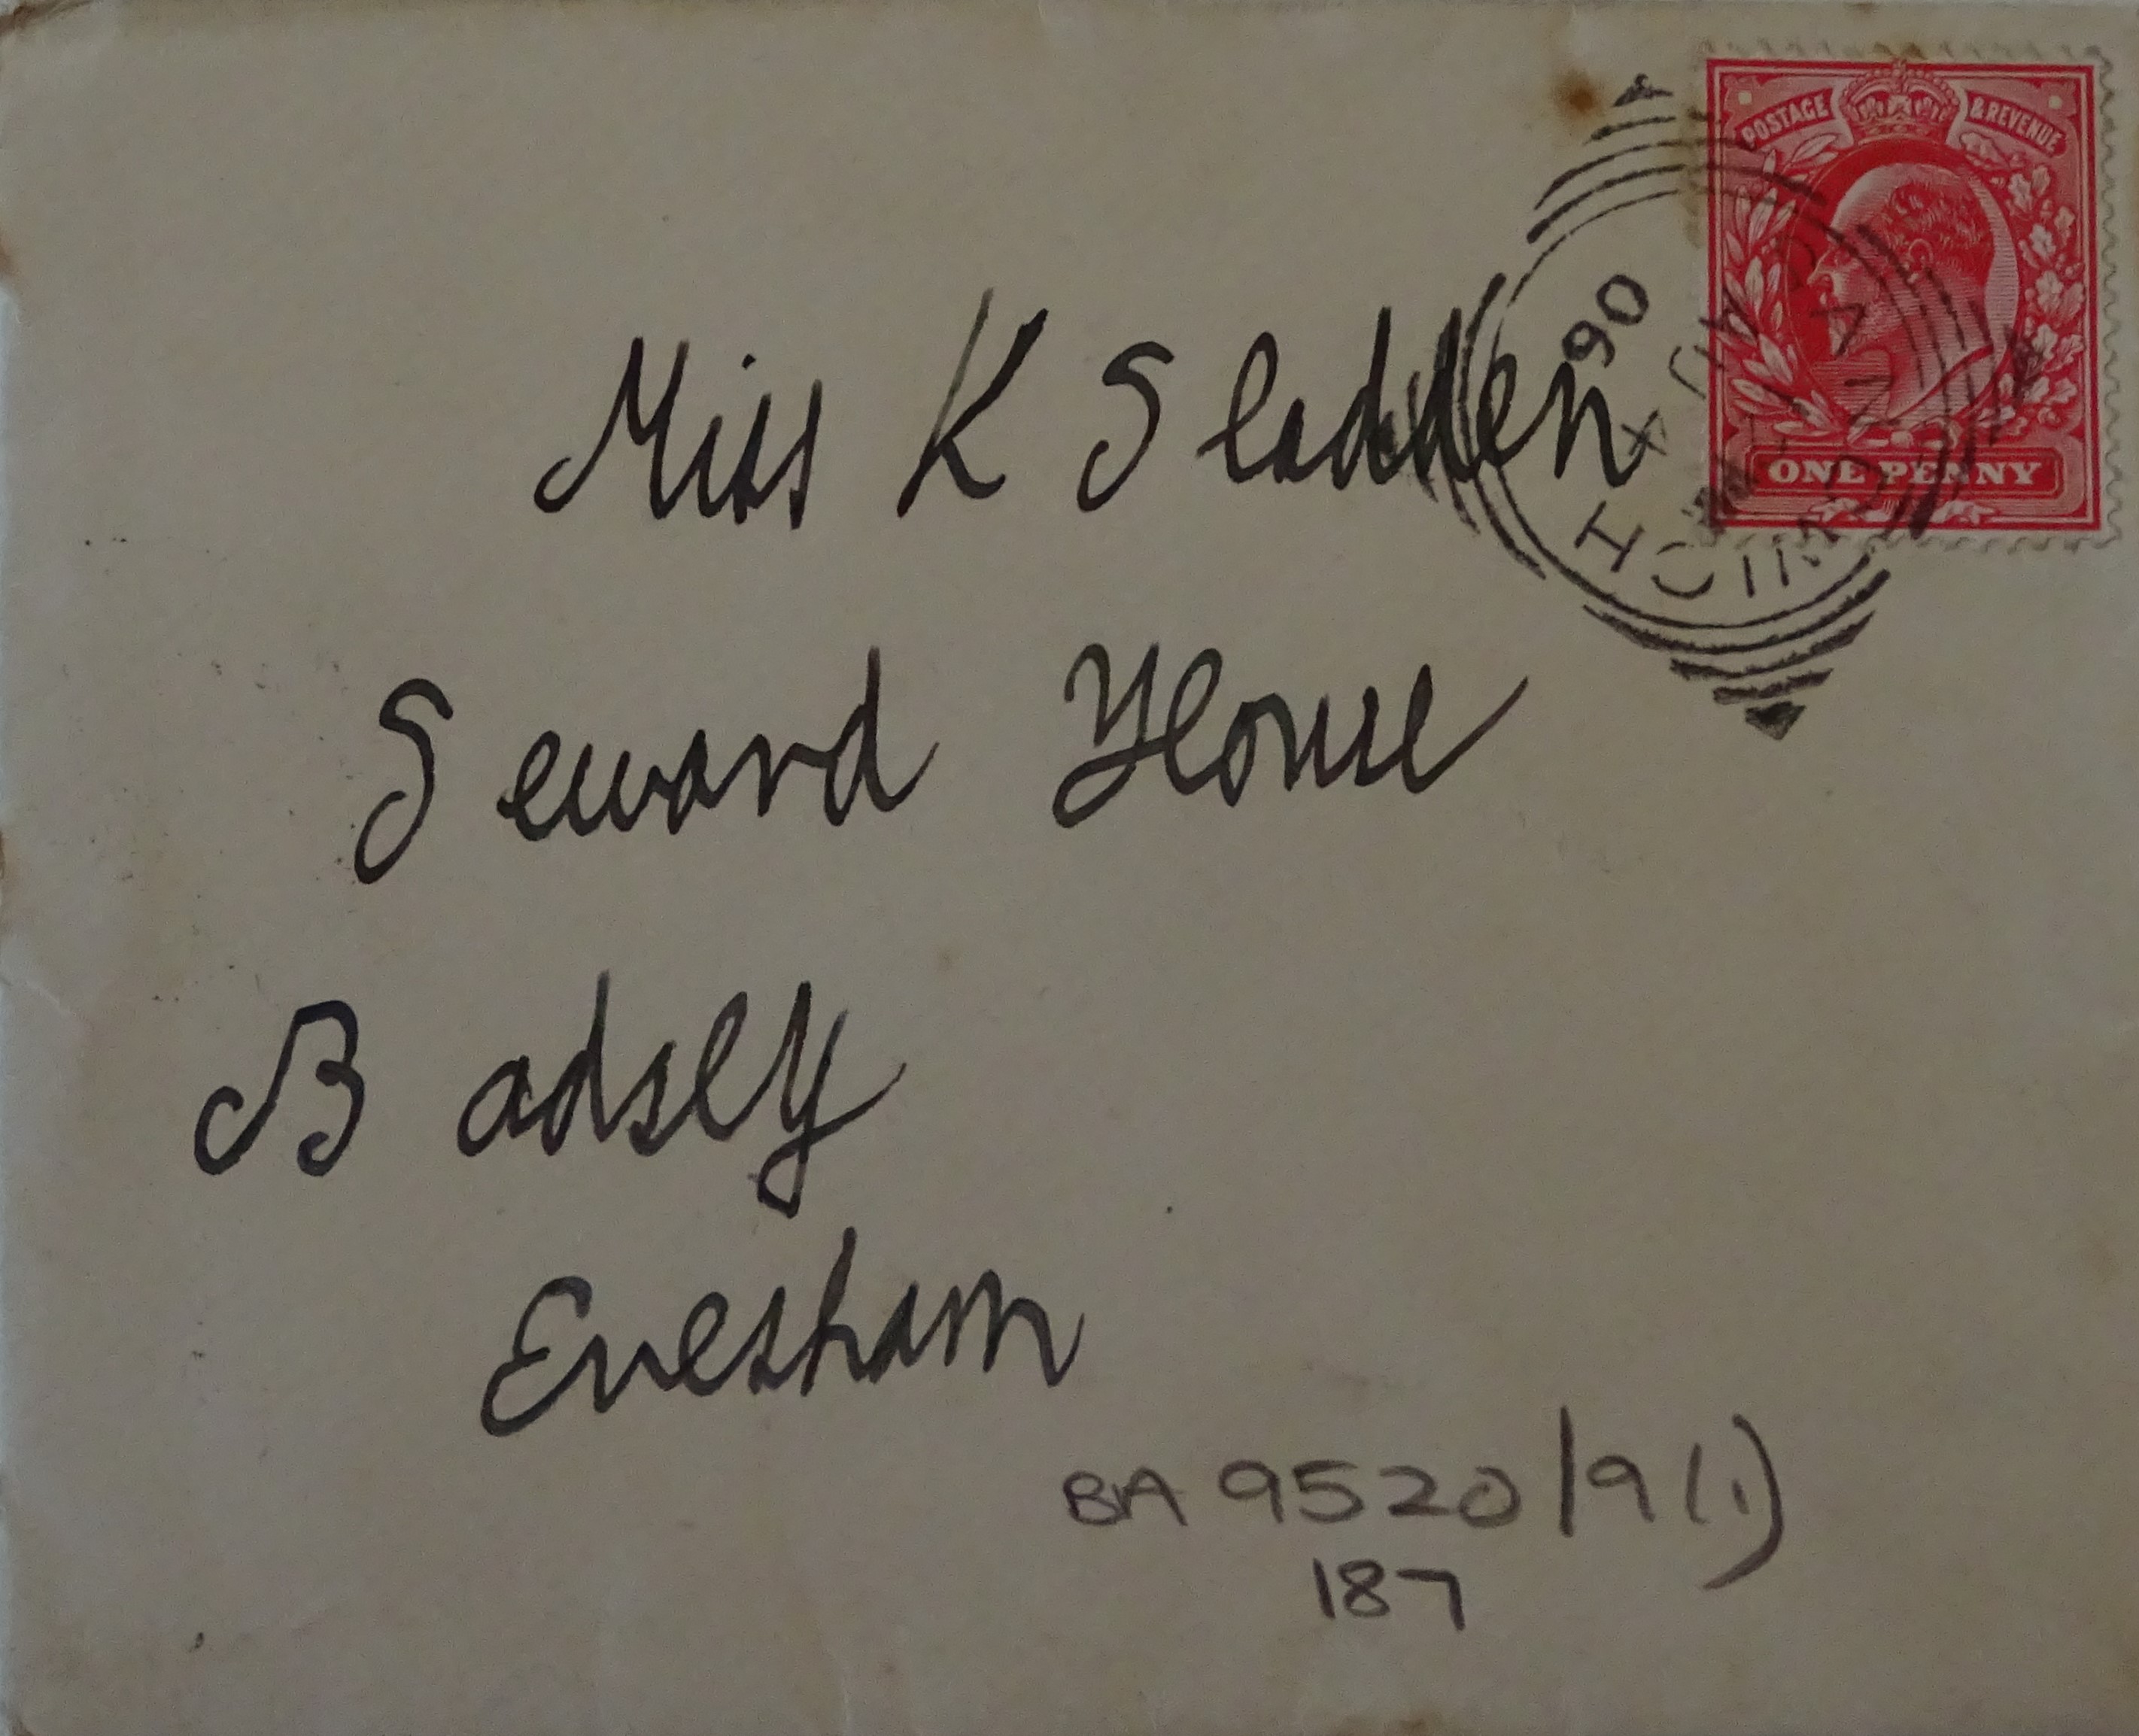 POSTAGE & REVENUE
ONE PENNY
06
Miss K Sladden
Seward House
Badsey
Evesham
BA 9520/9(1)
187